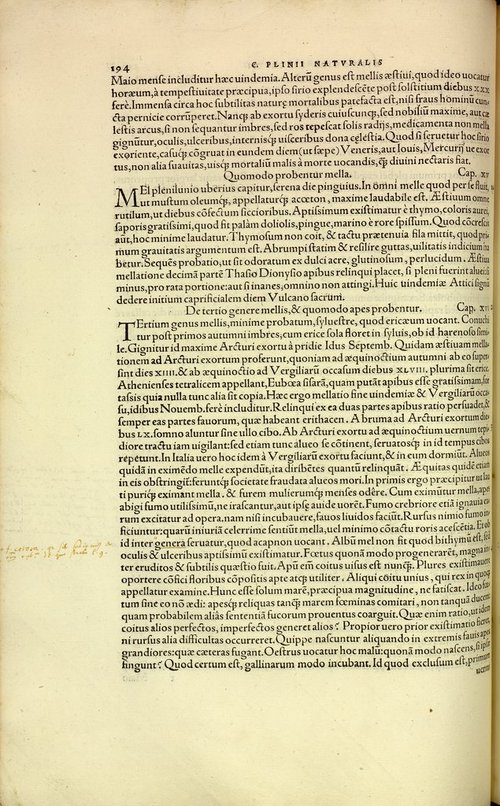 194 C. PLINII NATVRALIS
Maio mense includitur hæc uindemia. Alterũ genus est mellis æstiui, quod ideo uocatur
horæum, à tempestiuitate præcipua, ipso sirio explendescẽte post solstitium diebus XXX
ferè. Immensa circa hoc subtilitas naturę mortalibus patefacta est, nisi fraus hominũ cun
cta pernicie corrũperet. Nanq̃ ab exortu syderis cuiuscunq̃, sed nobiliũ maxime, aut cæ
lestis arcus, si non sequantur imbres, sed ros tepescat solis radijs, medicamenta non mella
gignũtur, oculis, ulceribus, internisq́ uisceribus dona cęlestia. Quod si seruetur hoc sirio
exoriente, casuq́ cõgruat in eundem diem (ut sæpe) Veneris, aut Iouis, Mercurij ue exor
tus, non alia suauitas, uisq́ mortaliũ malis à morte uocandis, q̃ diuini nectaris fiat.
Quomodo probentur mella. Cap. XV
MEl plenilunio uberius capitur, serena die pinguius. In omni melle quod per se fluit,
ut mustum oleumq́, appellatur acœton, maxime laudabile est. Æstiuum omne
rutilum, ut diebus cõfectum siccioribus. Aptissimum existimatur è thymo, coloris aurei,
saporis gratissimi, quod fit palàm doliolis, pingue, marino è rore spissum. Quod cõcrescit
aũt, hoc minime laudatur. Thymosum non coit, & tactu prætenuia fila mittit, quod pri
mum grauitatis argumentum est. Abrumpi statim & resilire guttas, uilitatis indicium ha
betur. Sequẽs probatio, ut sit odoratum ex dulci acre, glutinosum, perlucidum. Æstiua
mellatione decimã partẽ Thasio Dionysio apibus relinqui placet, si pleni fuerint aluei: si
minus, pro rata portione: aut si inanes, omnino non attingi. Huic uindemiæ Attici signũ
dedere initium caprificialem diem Vulcano sacrum.
De tertio genere mellis, & quomodo apes probentur. Cap. XVI
TErtium genus mellis, minime probatum, syluestre, quod ericæum uocant. Conuehi
tur post primos autumni imbres, cum erice sola floret in syluis, ob id harenoso simi
le. Gignitur id maxime Arcturi exortu à pridie Idus Septemb. Quidam æstiuam mella
tionem ad Arcturi exortum proferunt, quoniam ad æquinoctium autumni ab eo super
sint dies XIIII, & ab æquinoctio ad Vergiliarũ occasum diebus XLVIII. plurima sit erice.
Athenienses tetralicem appellant, Eubœa sisarã, quam putãt apibus esse gratissimam, for
tassis quia nulla tunc alia sit copia. Hæc ergo mellatio fine uindemiæ & Vergiliarũ occa
su, idibus Nouemb. ferè includitur. Relinqui ex ea duas partes apibus ratio persuadet, &
semper eas partes fauorum, quæ habeant erithacen. A bruma ad Arcturi exortum die
bus LX. somno aluntur sine ullo cibo. Ab Arcturi exortu ad æquinoctium uernum tepi
diore tractu iam uigilant: sed etiam tunc alueo se cõtinent, seruatosq́ in id tempus cibos
repetunt. In Italia uero hoc idem à Vergiliarũ exortu faciunt, & in eum dormiũt. Alueos
quidã in eximẽdo melle expendũt, ita diribẽtes quantũ relinquãt. Æquitas quidẽ etiam
in eis obstringit: feruntq́ societate fraudata alueos mori. In primis ergo præcipitur ut lau
ti puriq́ eximant mella. & furem mulierumq́ menses odêre. Cum eximũtur mella, apes
abigi fumo utilissimũ, ne irascantur, aut ipsę auide uorẽt. Fumo crebriore etiã ignauia ea
rum excitatur ad opera. nam nisi incubauere, fauos liuidos faciũt. Rursus nimio fumo in
ficiuntur: quarũ iniuriã celerrime sentiũt mella, uel minimo cõtactu roris acescẽtia. Et ob
id inter genera seruatur, quod acapnon uocant. Albũ mel non fit quod bithymũ est, sed
oculis & ulceribus aptissimũ existimatur. Fœtus quonã modo progenerarẽt, magna in
ter eruditos & subtilis quæstio fuit. Apũ eĩm coitus uisus est nunq̃. Plures existimauere
oportere cõfici floribus cõpositis apte atq́ utiliter. Aliqui coitu unius, qui rex in quoq́
appellatur examine. Hunc esse solum marẽ, præcipua magnitudine, ne fatiscat. Ideo fœ
tum sine eo nõ ædi: apesq́ reliquas tanq̃ marem fœminas comitari, non tanquã ducem.
quam probabilem aliàs sententiã fucorum prouentus coarguit. Quæ enim ratio, ut idem
coitus alios perfectos, imperfectos generet alios? Propior uero prior existimatio fieret,
ni rursus alia difficultas occurreret. Quippe nascuntur aliquando in extremis fauis apes
grandiores: quæ cæteras fugant. Oestrus uocatur hoc malũ: quonã modo nascens, si ipsæ
fingunt? Quod certum est, gallinarum modo incubant. Id quod exclusum est, primum